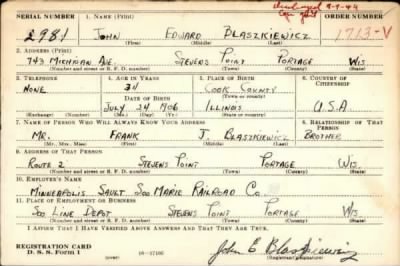 SERIAL NUMBER 1. NAME (Print) ORDER NUMBER
2981 JOHN EDWARD BLASZKIEWICZ 1713-V
(First) (Middle) (Last)
2. ADDRESS (Print)
743 MICHIGAN AVE. STEVENS POINT PORTAGE WIS
(Number and street or R. F. D. number) (Town) (County) (State)
3. TELEPHONE 4. AGE IN YEARS 5. PLACE OF BIRTH 6. COUNTRY OF CITIZENSHIP
NONE 34 COOK COUNTY
DATE OF BIRTH (Town or county)
JULY 24 1906 ILLINOIS U.S.A.
(Exchange) (Number) (Mo.) (Day) (Yr.) (State or country)
7. NAME OF PERSON WHO WILL ALWAYS KNOW YOUR ADDRESS 8. RELATIONSHIP OF THAT PERSON
MR. FRANK J. BLASZKIEWICZ BROTHER
(Mr., Mrs., Miss) (First) (Middle) (Last)
9. ADDRESS OF THAT PERSON
ROUTE 2 STEVENS POINT PORTAGE WIS.
(Number and street or R. F. D. number) (Town) (County) (State)
10. EMPLOYER'S NAME
MINNEAPOLIS SAULT SOO MARIE RAILROAD CO.
11. PLACE OF EMPLOYMENT OR BUSINESS
SOO LINE DEPOT STEVENS POINT PORTAGE WIS.
(Number and street or R. F. D. number) (Town) (County) (State)
I AFFIRM THAT I HAVE VERIFIED ABOVE ANSWERS AND THAT THEY ARE TRUE.
REGISTRATION CARD
D. S. S. Form 1 16-17105 John E Blaszkiewicz
(Registrant's signature)